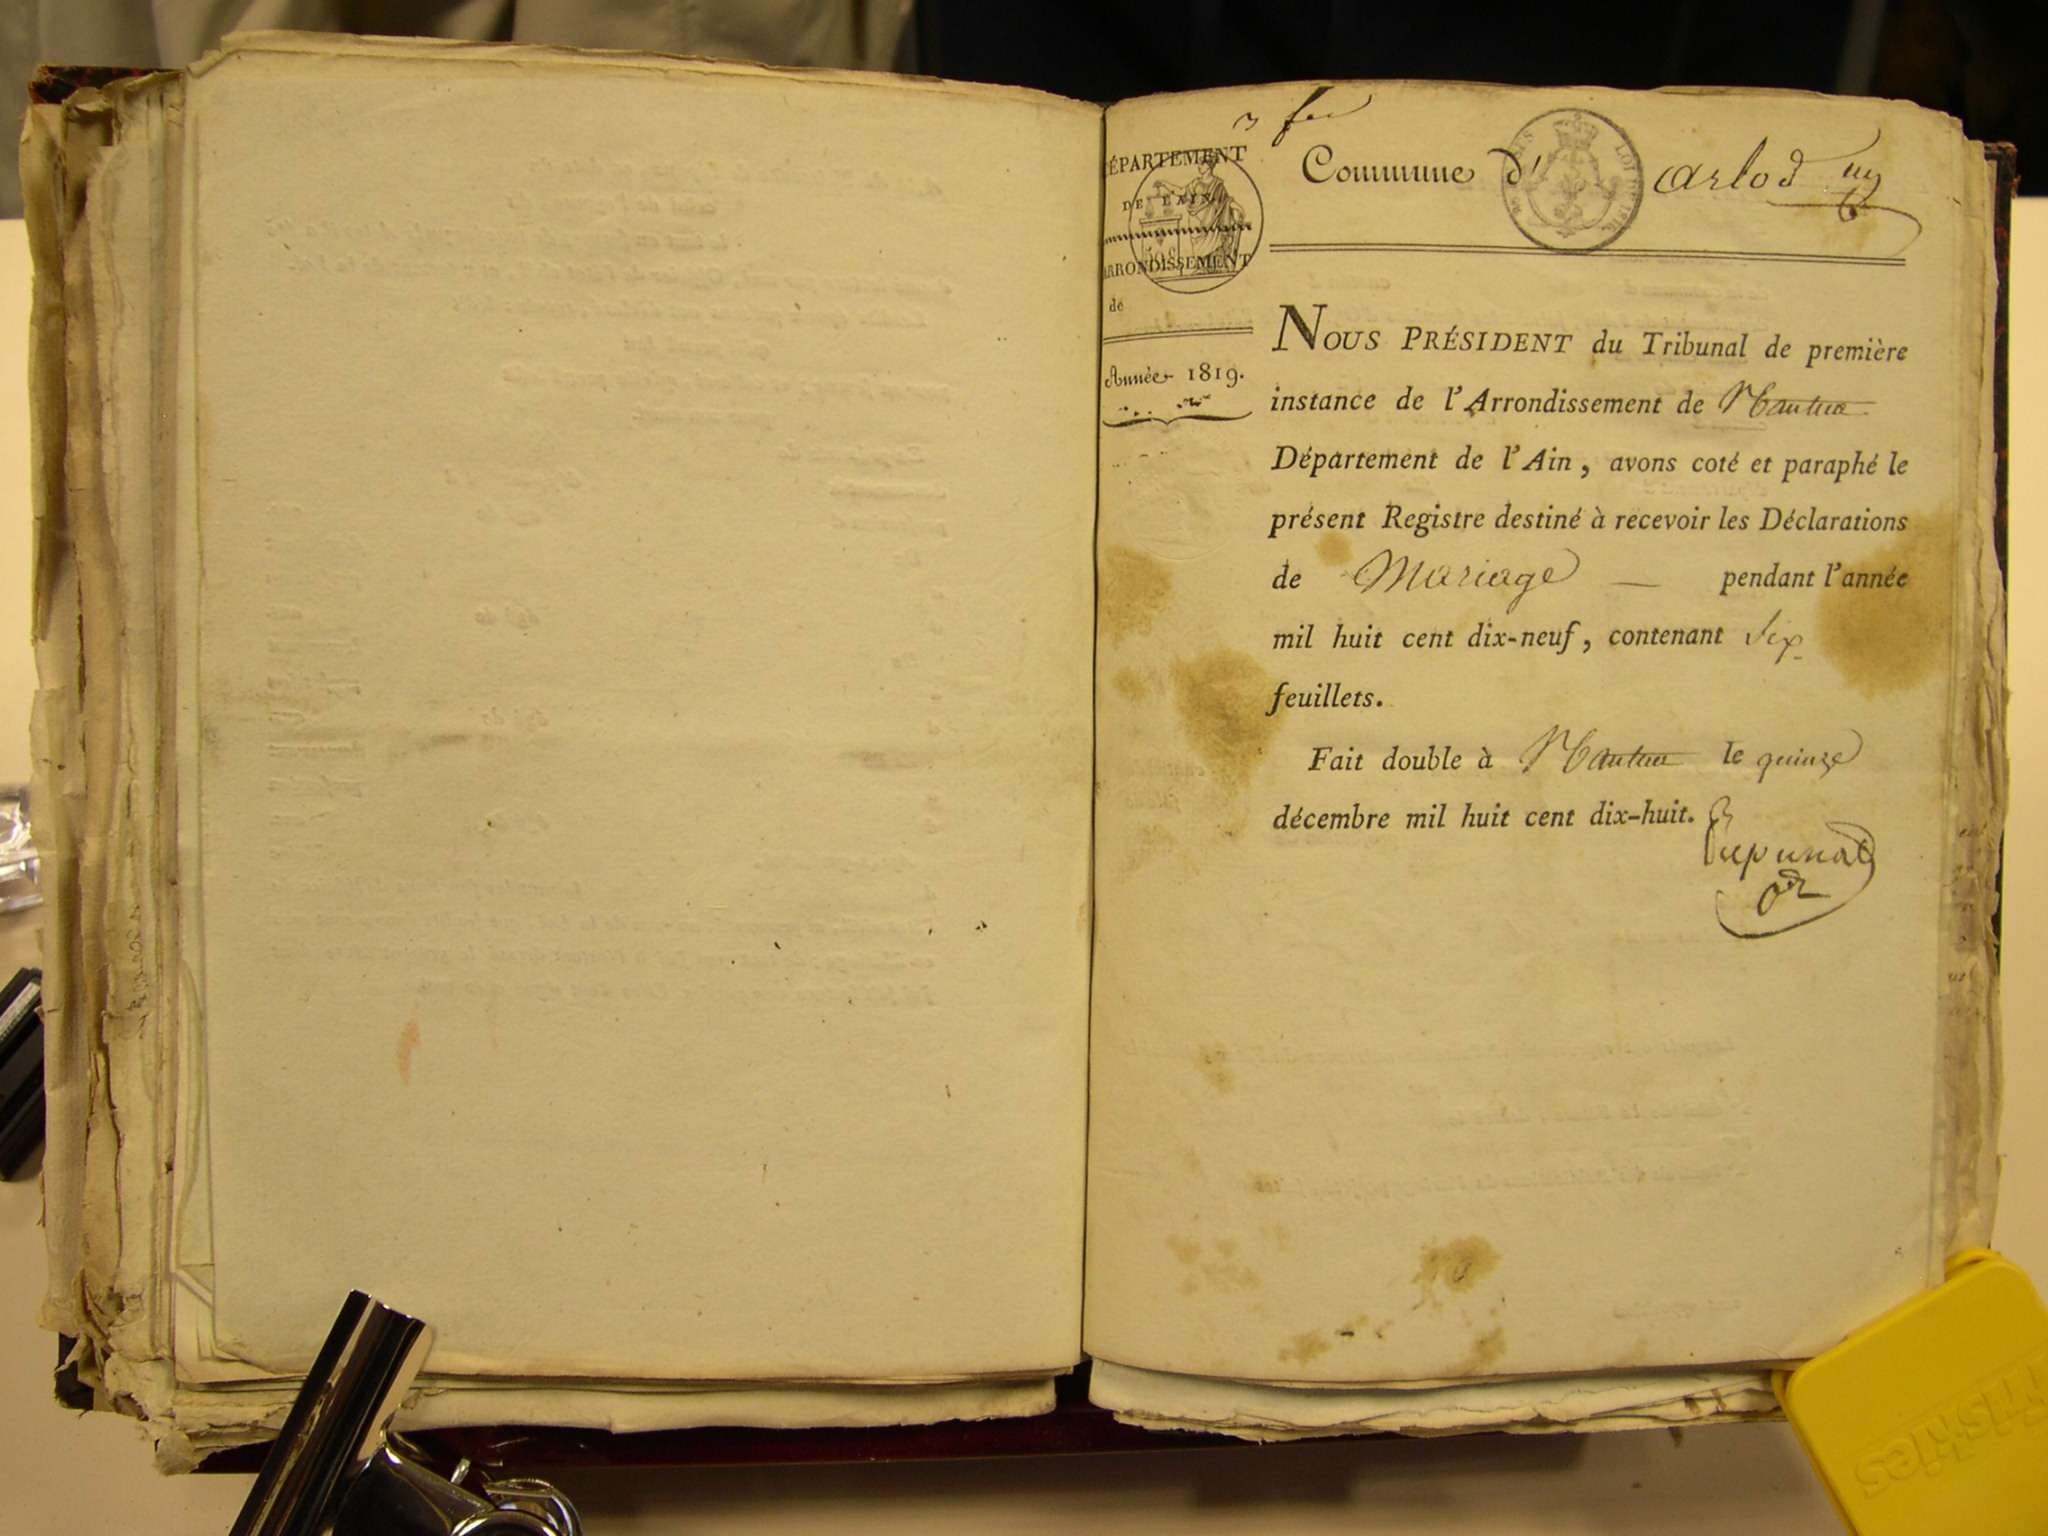 DÉPARTEMENT
DE L'AIN.
ARRONDISSEMENT
de
Année 1819.
Commune d'arlod
NOUS PRÉSIDENT du Tribunal de première
instance de l'Arrondissement de Nantua
Département de l'Ain, avons coté et paraphé le
présent Registre destiné à recevoir les Déclarations
de Mariage — pendant l'année
mil huit cent dix-neuf, contenant Six
feuillets.
Fait double à Nantua le quinze
décembre mil huit cent dix-huit.